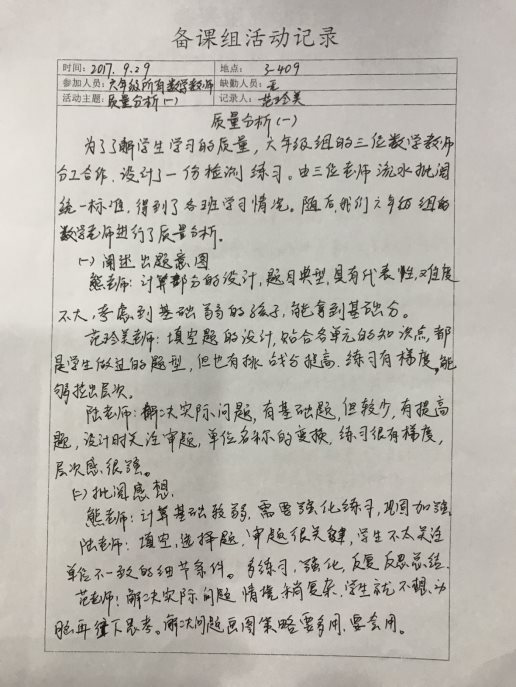 备课组活动记录
时间：2017.9.29 地点：3-409
参加人员：六年级所有数学教师 缺勤人员：无
活动主题：质量分析(一) 记录人：范玲美
质量分析(一)
为了了解学生学习的质量，六年级组的三位数学教师
分工合作，设计了一份检测练习。由三位老师流水批阅
统一标准，得到了各班学习情况。随后我们六年级组的
数学老师进行了质量分析。
(一)阐述出题意图
熊老师：计算部分的设计，题目典型，具有代表性，难度
不大，考虑到基础弱的孩子，能拿到基础分。
范玲美老师：填空题的设计，贴合各单元的知识点，都
是学生做过的题型，但也有挑战分提高，练习有梯度，能
够拉出层次。
陆老师：解决实际问题，有基础题，但较少，有提高
题，设计时关注审题，单位名称的变换，练习很有梯度，
层次感很强。
(二)批阅感想
熊老师：计算基础较弱，需要强化练习，巩固加强。
陆老师：填空，选择题，审题很关键，学生不太关注
单位不一致的细节条件。多练习，强化，反复反思总结。
范老师：解决实际问题情境稍复杂，学生就不愿动
脑再继下思考。解决问题画图策略要多用，要会用。